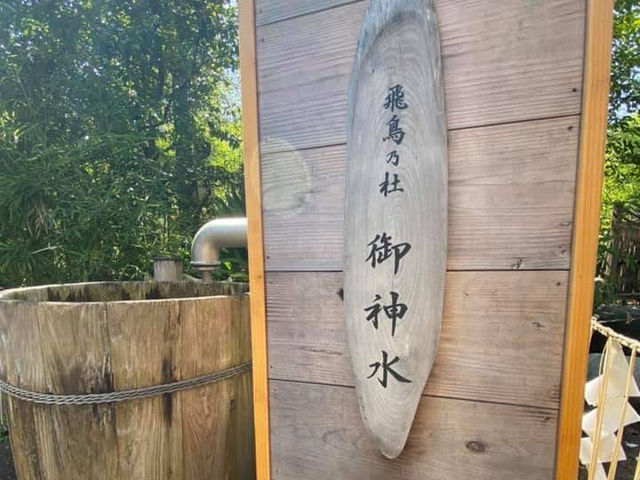 飛鳥乃杜 御神水